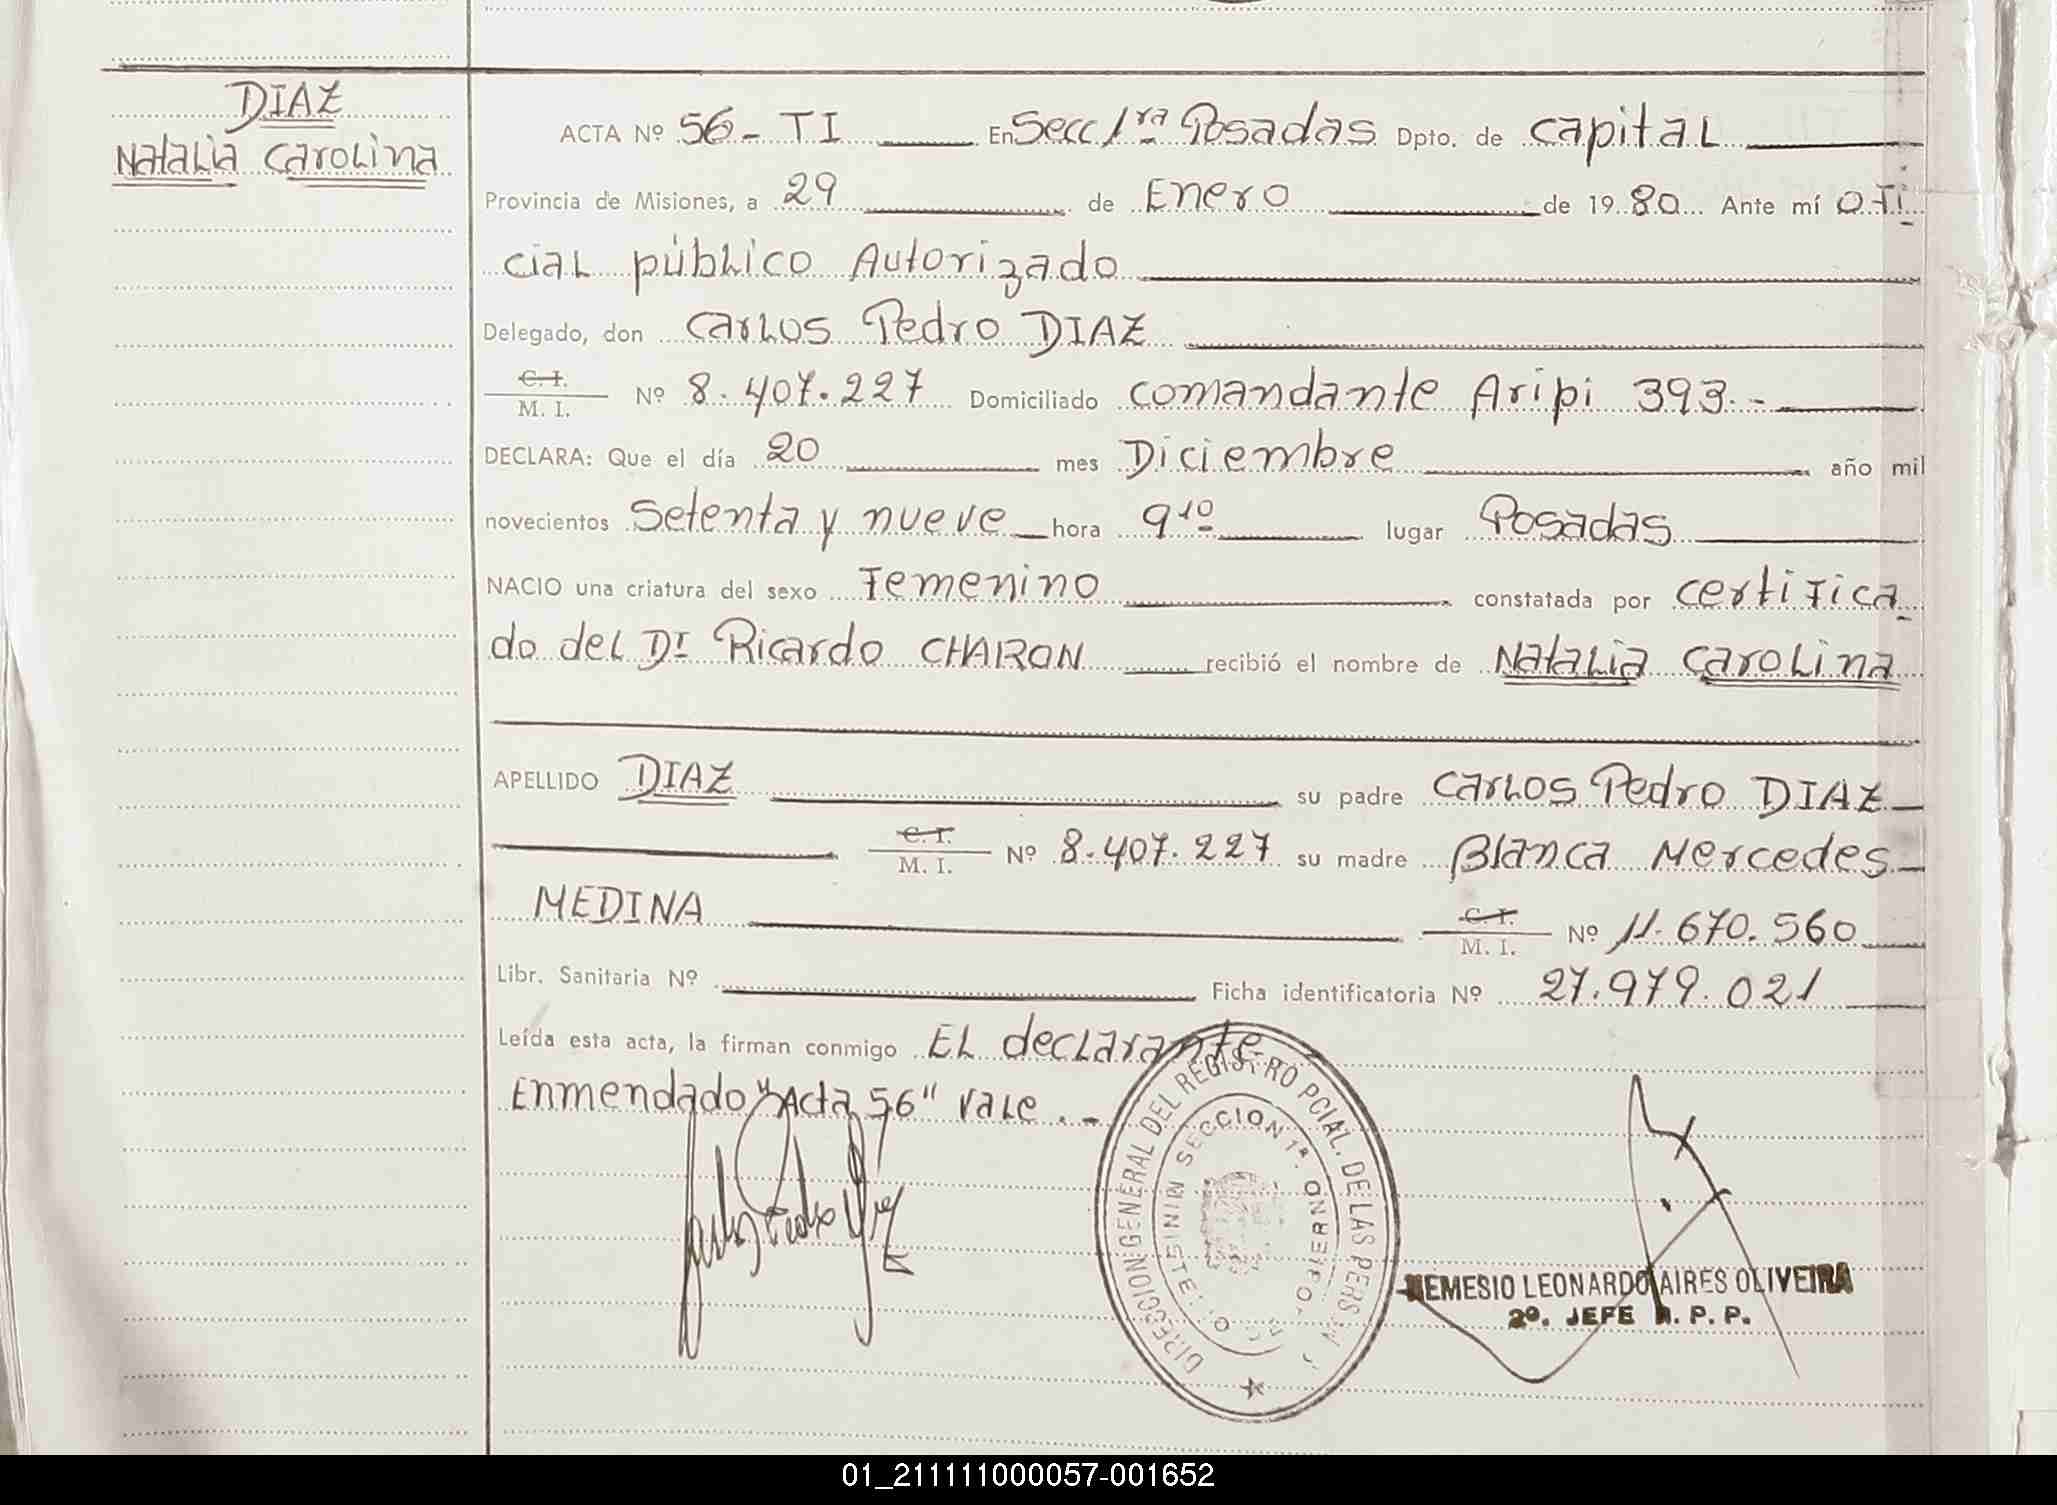 DIAZ
Natalia Carolina
ACTA Nº 56 - TI En Secc 1ra Posadas Dpto. de Capital
Provincia de Misiones, a 29 de Enero de 1980 Ante mí ofi
cial público Autorizado
Delegado, don Carlos Pedro DIAZ
C. I. / M. I. Nº 8.407.227 Domiciliado Comandante Aripi 393.-
DECLARA: Que el día 20 mes Diciembre año mil
novecientos Setenta y nueve hora 9 10 lugar Posadas
NACIO una criatura del sexo Femenino constatada por certifica
do del Dr Ricardo CHARON recibió el nombre de Natalia Carolina
APELLIDO DIAZ su padre Carlos Pedro DIAZ
C. I. / M. I. Nº 8.407.227 su madre Blanca Mercedes
MEDINA C. I. / M. I. Nº 11.670.560
Libr. Sanitaria Nº Ficha identificatoria Nº 27.979.021
Leída esta acta, la firman conmigo El declarante
Enmendado "Acta 56" vale.-
DIRECCION GENERAL DEL REGISTRO PCIAL. DE LAS PERS
SECCION 1ª.
NEMESIO LEONARDO AIRES OLIVEIRA
2º. JEFE R. P. P.
01_211111000057-001652